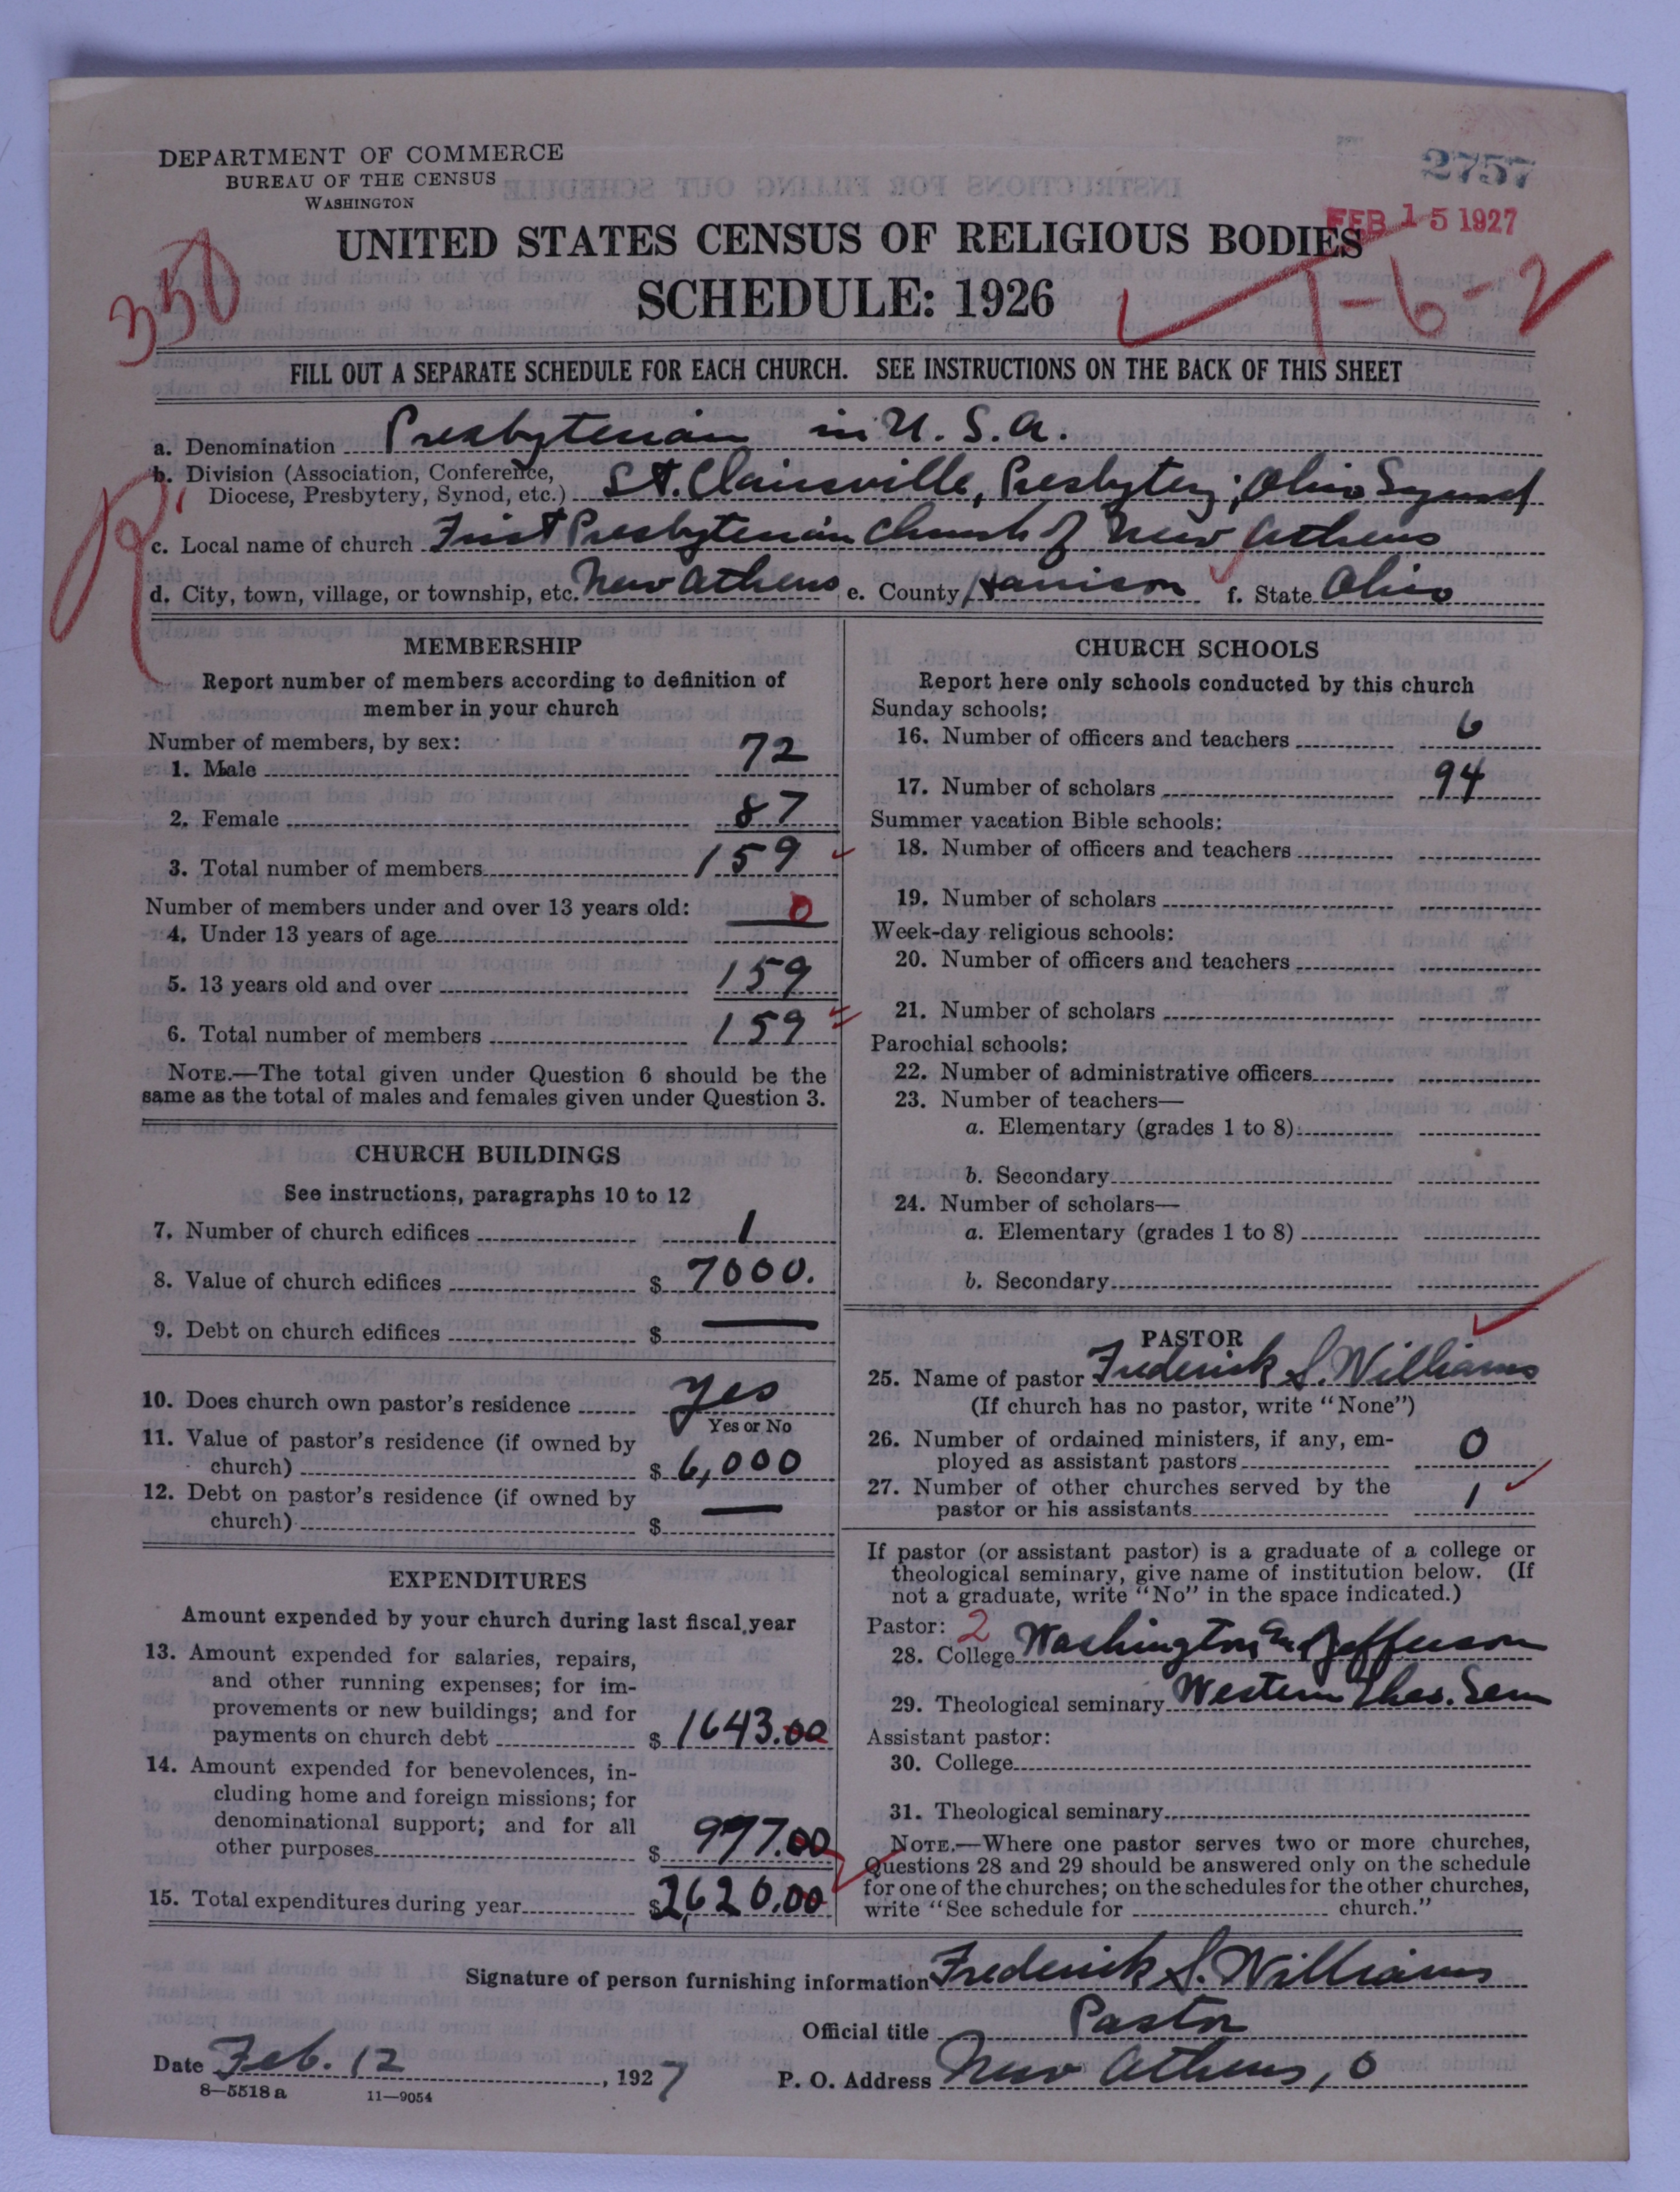 DEPARTMENT OF COMMERCE
BUREAU OF THE CENSUS
WASHINGTON
2757
FEB 15 1927
UNITED STATES CENSUS OF RELIGIOUS BODIES
SCHEDULE: 1926
350
1-6-2
FILL OUT A SEPARATE SCHEDULE FOR EACH CHURCH. SEE INSTRUCTIONS ON THE BACK OF THIS SHEET
a. Denomination Presbyterian in U.S.A.
b. Division (Association, Conference,
Diocese, Presbytery, Synod, etc.) St. Clairsville, Presbytery; Ohio Synod
R
c. Local name of church First Presbyterian Church of New Athens
d. City, town, village, or township, etc. New Athens e. County Harrison f. State Ohio
MEMBERSHIP
Report number of members according to definition of
member in your church
Number of members, by sex:
1. Male 72
2. Female 87
3. Total number of members 159
Number of members under and over 13 years old:
4. Under 13 years of age 0
5. 13 years old and over 159
6. Total number of members 159
NOTE.—The total given under Question 6 should be the
same as the total of males and females given under Question 3.
CHURCH BUILDINGS
See instructions, paragraphs 10 to 12
7. Number of church edifices 1
8. Value of church edifices $ 7000.
9. Debt on church edifices $ —
10. Does church own pastor's residence yes
Yes or No
11. Value of pastor's residence (if owned by
church) $ 6,000
12. Debt on pastor's residence (if owned by
church) $ —
EXPENDITURES
Amount expended by your church during last fiscal year
13. Amount expended for salaries, repairs,
and other running expenses; for im-
provements or new buildings; and for
payments on church debt $ 1643.00
14. Amount expended for benevolences, in-
cluding home and foreign missions; for
denominational support; and for all
other purposes $ 977.00
15. Total expenditures during year $ 2,620.00
CHURCH SCHOOLS
Report here only schools conducted by this church
Sunday schools:
16. Number of officers and teachers 6
17. Number of scholars 94
Summer vacation Bible schools:
18. Number of officers and teachers
19. Number of scholars
Week-day religious schools:
20. Number of officers and teachers
21. Number of scholars
Parochial schools:
22. Number of administrative officers
23. Number of teachers—
a. Elementary (grades 1 to 8)
b. Secondary
24. Number of scholars—
a. Elementary (grades 1 to 8)
b. Secondary
PASTOR
25. Name of pastor Frederick S. Williams
(If church has no pastor, write "None")
26. Number of ordained ministers, if any, em-
ployed as assistant pastors 0
27. Number of other churches served by the
pastor or his assistants 1
If pastor (or assistant pastor) is a graduate of a college or
theological seminary, give name of institution below. (If
not a graduate, write "No" in the space indicated.)
Pastor: 2
28. College Washington and Jefferson
29. Theological seminary Western Theo. Sem
Assistant pastor:
30. College
31. Theological seminary
NOTE.—Where one pastor serves two or more churches,
Questions 28 and 29 should be answered only on the schedule
for one of the churches; on the schedules for the other churches,
write "See schedule for church."
Signature of person furnishing information Frederick S. Williams
Official title Pastor
Date Feb. 12, 1927
P. O. Address New Athens, O
8—5518 a 11—9054